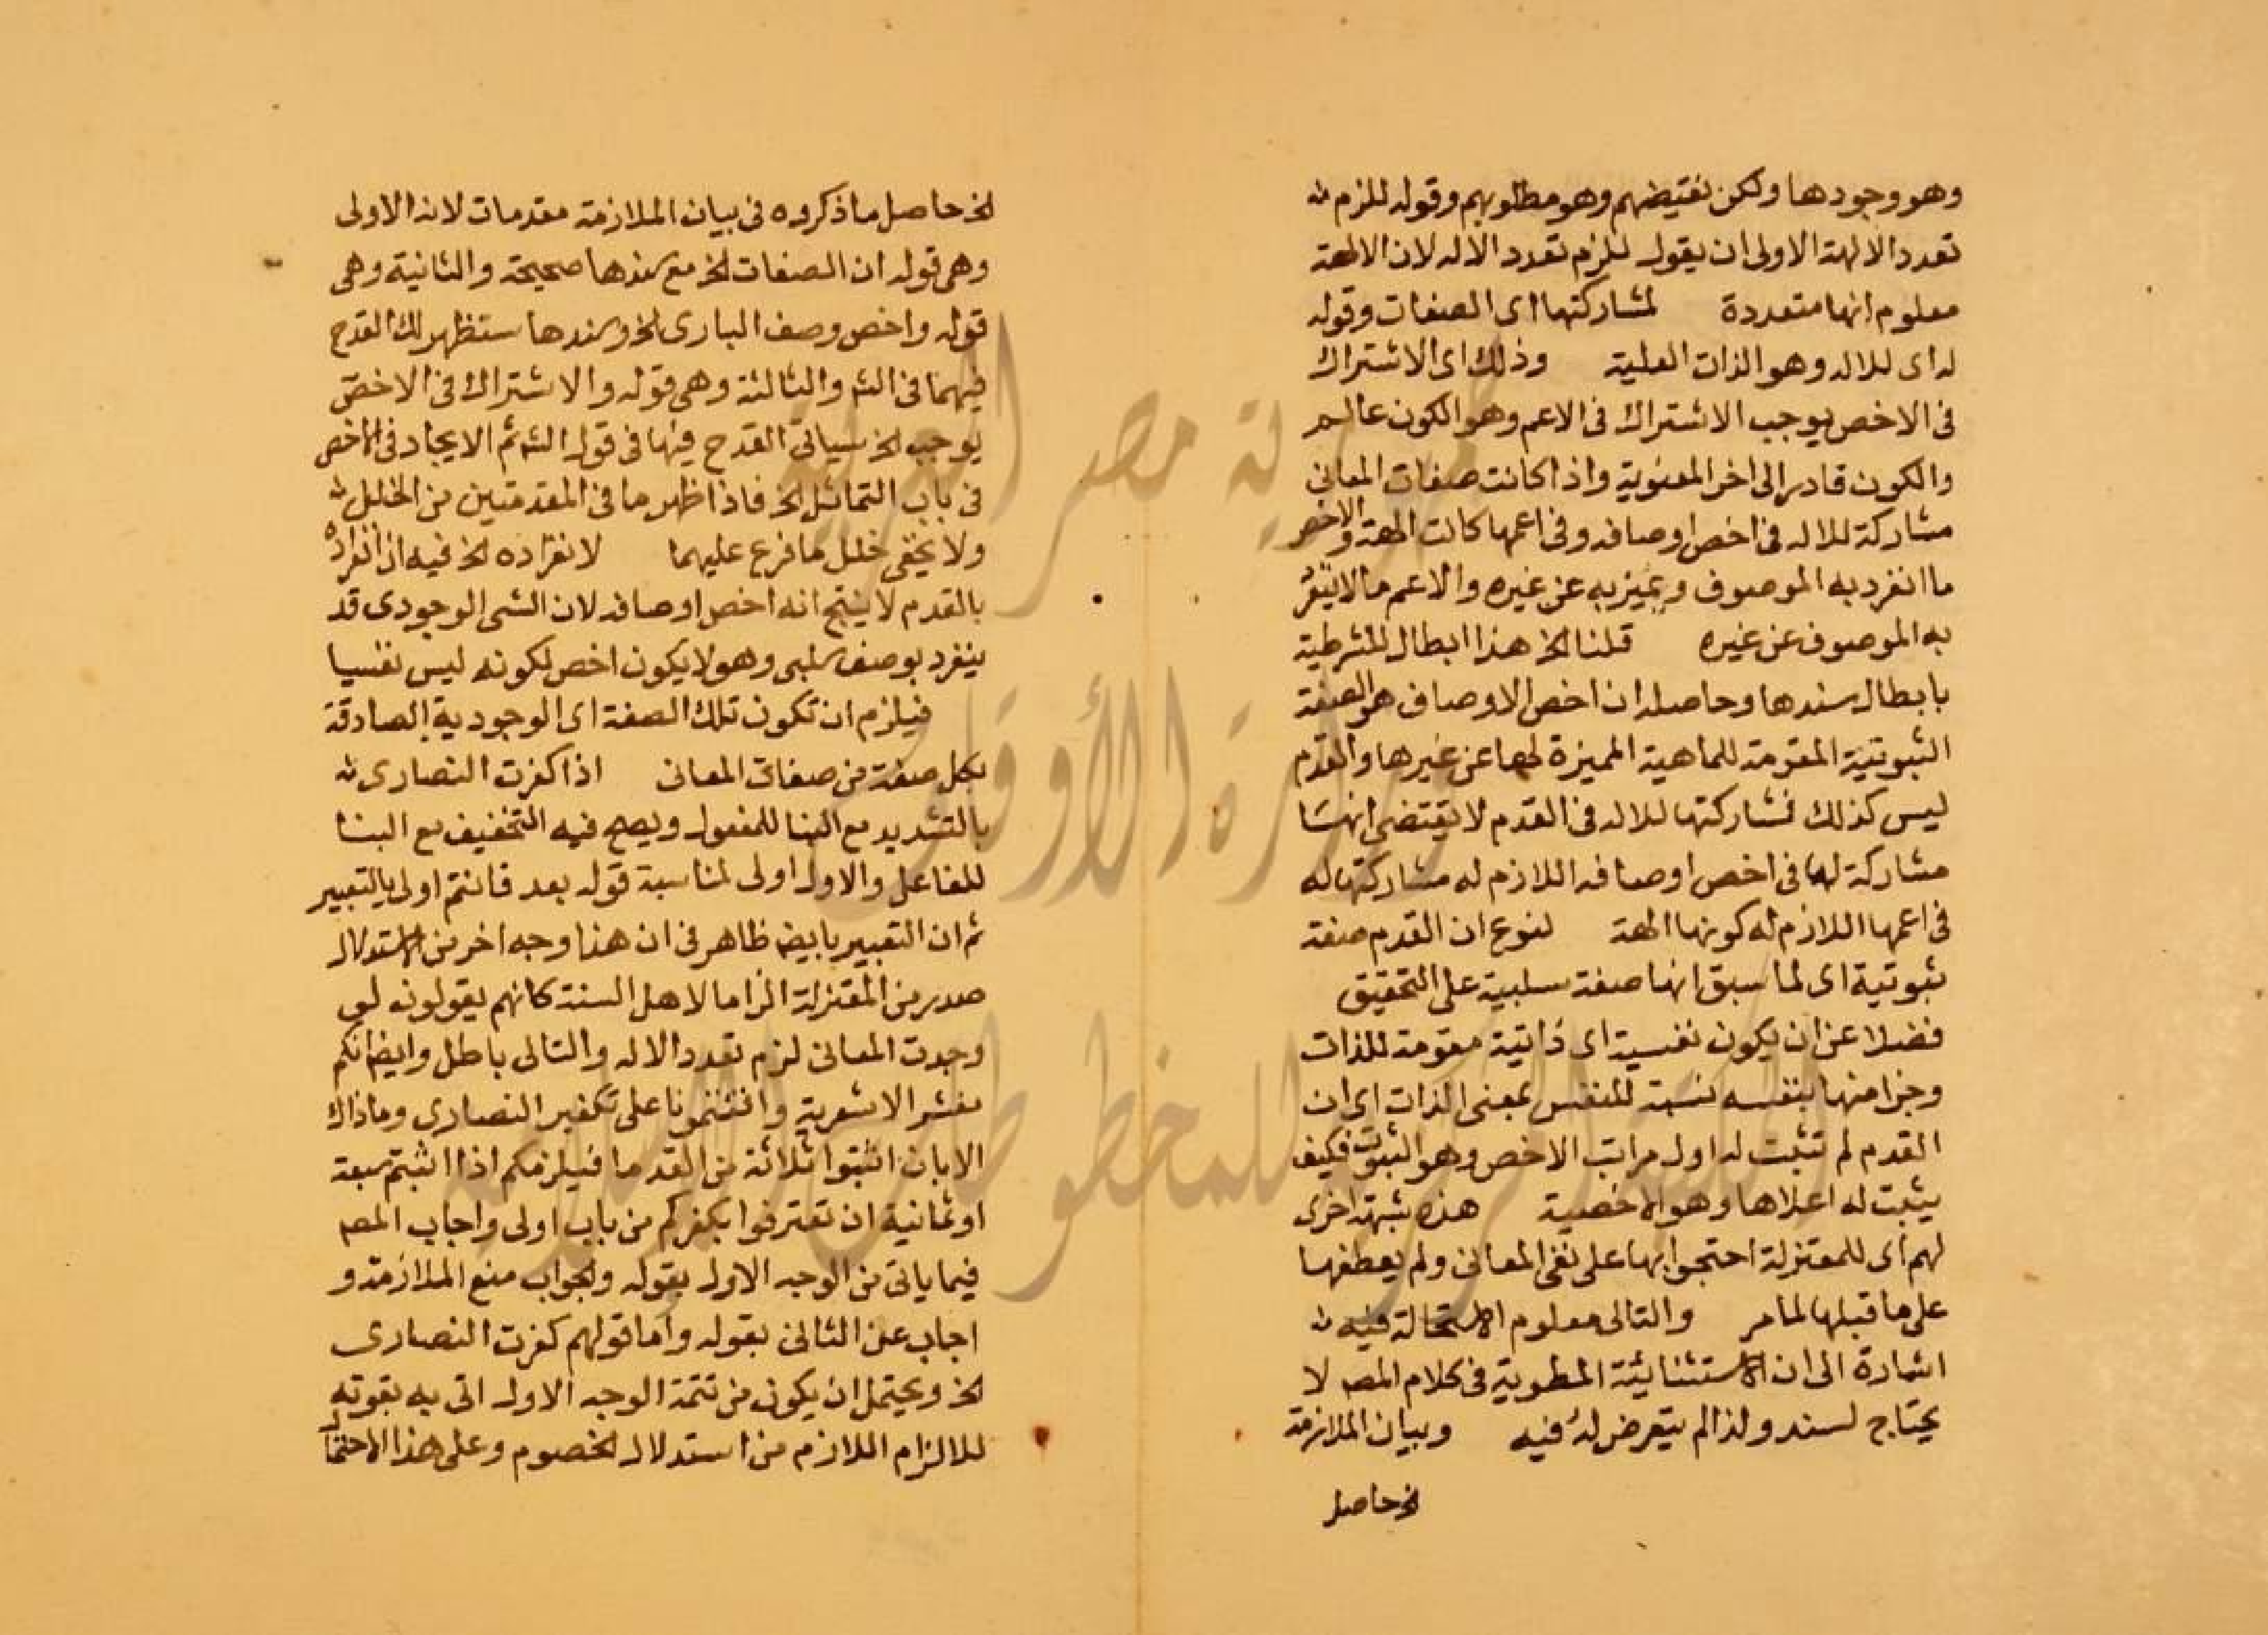 وهو وجودها ولكن نقيضهم وهو مطلوبهم وقوله للزم
تعدد الالهة الاولى ان يقول للزم تعدد الاله لان الالهة
معلوم انها متعددة لمشاركتها اى الصفات وقوله
له اى للاله وهو الذات العلية وذلك اى الاشتراك
فى الاخص يوجب الاشتراك فى الاعم وهو الكون عالم
والكون قادر الى اخر المعنوية واذا كانت صفات المعانى
مشاركة للاله فى اخص اوصافه وفى اعمها كانت الهة والاخص
ما انفرد به الموصوف وتميز به عن غيره والاعم مالا ينفرد
به الموصوف عن غيره قلنا الخ هذا ابطال للشرطية
بابطال سندها وحاصله ان اخص الاوصاف هو الصفة
الثبوتية المقومة للماهية المميزة لها عن غيرها والقدم
ليس كذلك فمشاركتها للاله فى القدم لا يقتضى انها
مشاركة لها فى اخص اوصافه اللازم له مشاركتها له
فى اعمها اللازم له كونها الهة لنوع ان القدم صفة
ثبوتية اى لما سبق انها صفة سلبية على التحقيق
فضلا عن ان يكون نفسية اى ذاتية مقومة للذات
وجزا منها بنفسه نسبة للنفس بمعنى الذات اى ان
القدم لم تثبت له اول مراتب الاخص وهو الثبوت فكيف
يثبت له اعلاها وهو الاخصية هذه شبهة اخرى
لهم اى للمعتزلة احتجوا بها على نفى المعانى ولم يعطفها
على ما قبلها لما مر والتالى معلوم الاستحالة فيه
اشارة الى ان الاستثنائية المطوية فى كلام المص لا
يحتاج لسند ولذا لم يتعرض له فيه وبيان الملازمة
الخ حاصل
الخ حاصل ما ذكروه فى بيان الملازمة مقدمات لانه الاولى
وهى قوله ان الصفات الخ مع سندها صحيحة والثانية وهى
قوله واخص وصف البارى الخ وسندها ستظهر لك القدح
فيهما فى الش والثالثة وهى قوله والاشتراك فى الاخص
يوجب الخ سياتى القدح فيها فى قول الش ثم الايجاد فى الاخص
فى باب التماثل الخ فاذا ظهر ما فى المقدمتين من الخلل
ولا يخفى خلل ما فرع عليهما لانفراده الخ فيه ان انفراده
بالقدم لا ينتج انه اخص اوصافه لان الشى الوجودى قد
ينفرد بوصف سلبى وهو لا يكون اخص لكونه ليس نفسيا
فيلزم ان تكون تلك الصفة اى الوجودية الصادقة
بكل صفة من صفات المعانى اذا كفرت النصارى
بالتشديد مع البنا للمفعول ويصح فيه التخفيف مع البنا
للفاعل والاول اولى لمناسبة قوله بعد فانتم اولى بالتعبير
ثم ان التعبير بايض ظاهر فى ان هذا وجه اخر من الاستدلال
صدر من المعتزلة الزاما لاهل السنة كانهم يقولون لو
وجدت المعانى لزم تعدد الاله والتالى باطل وايض انكم
معشر الاشعرية وافقتمونا على تكفير النصارى وما ذاك
الا بان اثبتوا ثلاثة من القدما فيلزمكم اذا اثبتم سبعة
او ثمانية ان تعترفوا بكفركم من باب اولى واجاب المص
فيما ياتى من الوجه الاول بقوله والجواب منع الملازمة و
اجاب عن الثانى بقوله واما قولهم كفرت النصارى
الخ ويحتمل ان يكون من تتمة الوجه الاول اتى به تقوية
للالزام اللازم من استدلال الخصوم وعلى هذا الاحتمال
جمهورية مصر العربية
وزارة الأوقاف
المكتبة المركزية للمخطوطات الإسلامية